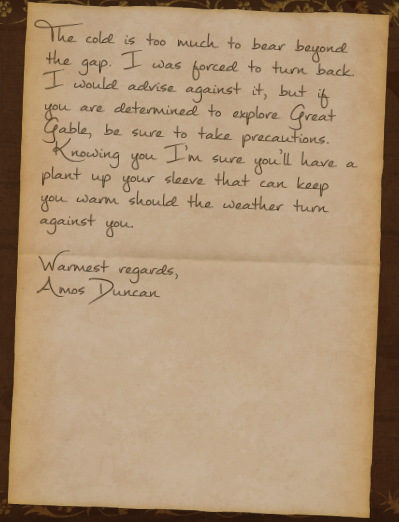 The cold is too much to bear beyond
the gap. I was forced to turn back.
I would advise against it, but if
you are determined to explore Great
Gable, be sure to take precautions.
Knowing you I'm sure you'll have a
plant up your sleeve that can keep
you warm should the weather turn
against you.
Warmest regards,
Amos Duncan